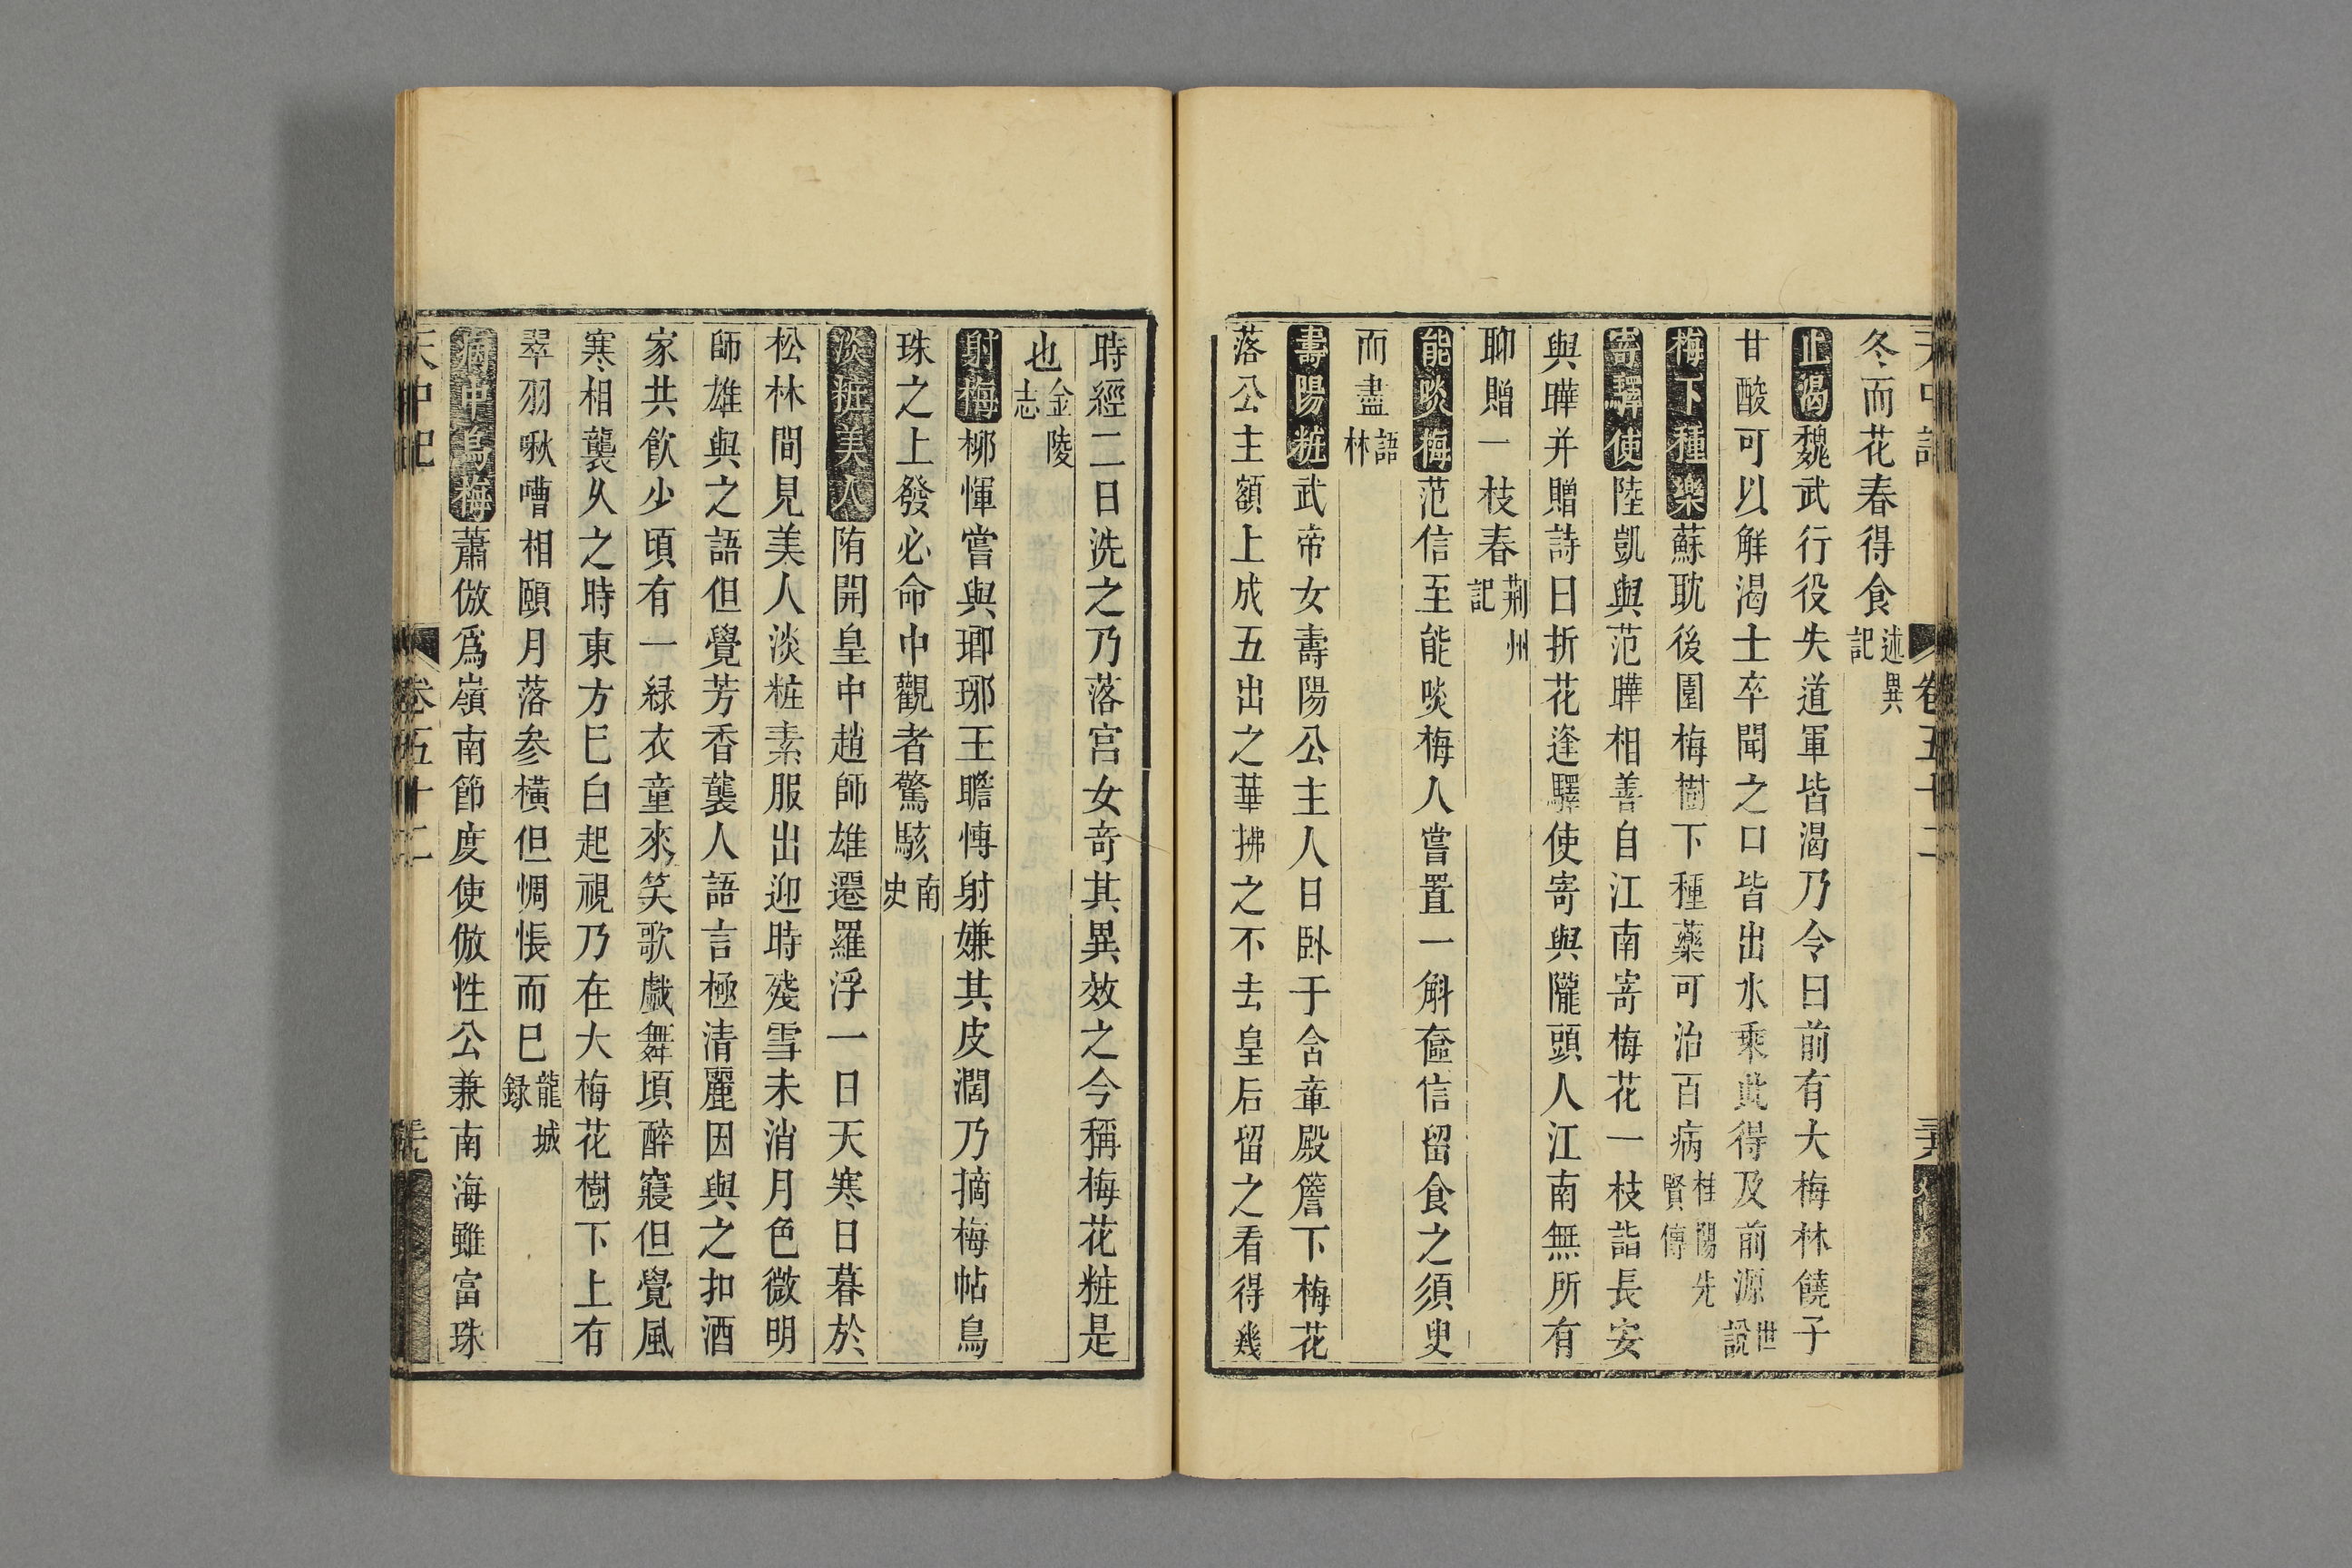 冬而花春得食述異記
止渴魏武行役失道軍皆渴乃令曰前有大梅林饒子
甘酸可以解渴士卒聞之口皆出水乘此得及前源世說
梅下種藥蘇耽後園梅樹下種藥可治百病桂陽先賢傳
寄驛使陸凱與范曄相善自江南寄梅花一枝詣長安
與曄并贈詩曰折花逢驛使寄與隴頭人江南無所有
聊贈一枝春荆州記
能啖梅范信至能啖梅人嘗置一斛奩信留食之須臾
而盡語林
壽陽粧武帝女壽陽公主人日卧于含章殿簷下梅花
落公主額上成五出之華拂之不去皇后留之看得幾
時經二日洗之乃落宮女奇其異效之今稱梅花粧是
也金陵志
射梅柳惲嘗與瑯琊王瞻博射嫌其皮濶乃摘梅帖烏
珠之上發必命中觀者驚駭南史
淡粧美人隋開皇中趙師雄遷羅浮一日天寒日暮於
松林間見美人淡粧素服出迎時殘雪未消月色微明
師雄與之語但覺芳香襲人語言極清麗因與之扣酒
家共飲少頃有一緑衣童來笑歌戲舞頃醉寢但覺風
寒相襲久之時東方已白起視乃在大梅花樹下上有
翠羽啾嘈相顧月落參橫但惆悵而已龍城録
蕭倣爲嶺南節度使倣性公兼南海雖富珠
天中記
卷五十二